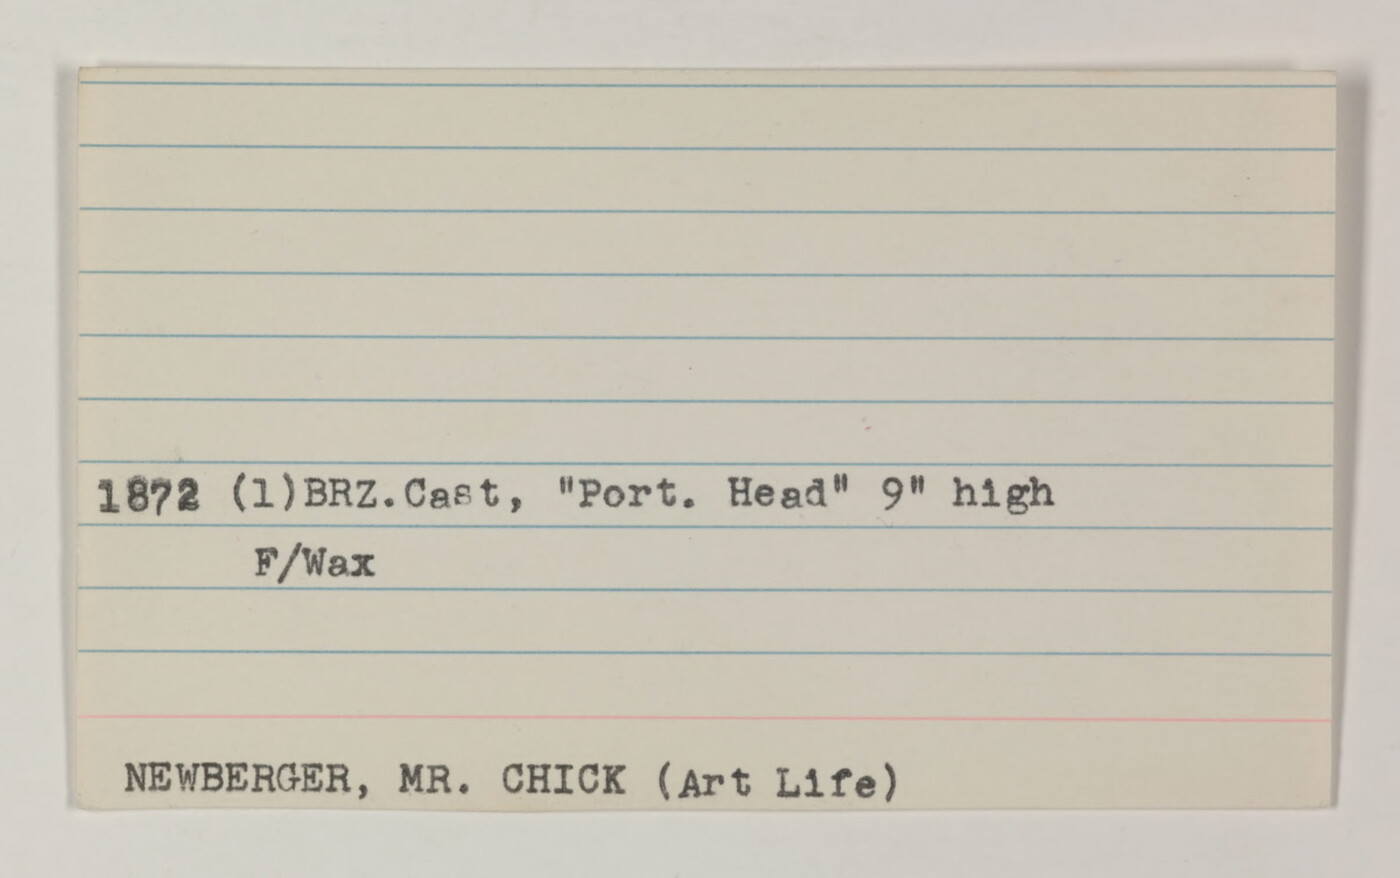 1872 (1)BRZ.Cast, "Port. Head" 9" high
F/Wax
NEWBERGER, MR. CHICK (Art Life)